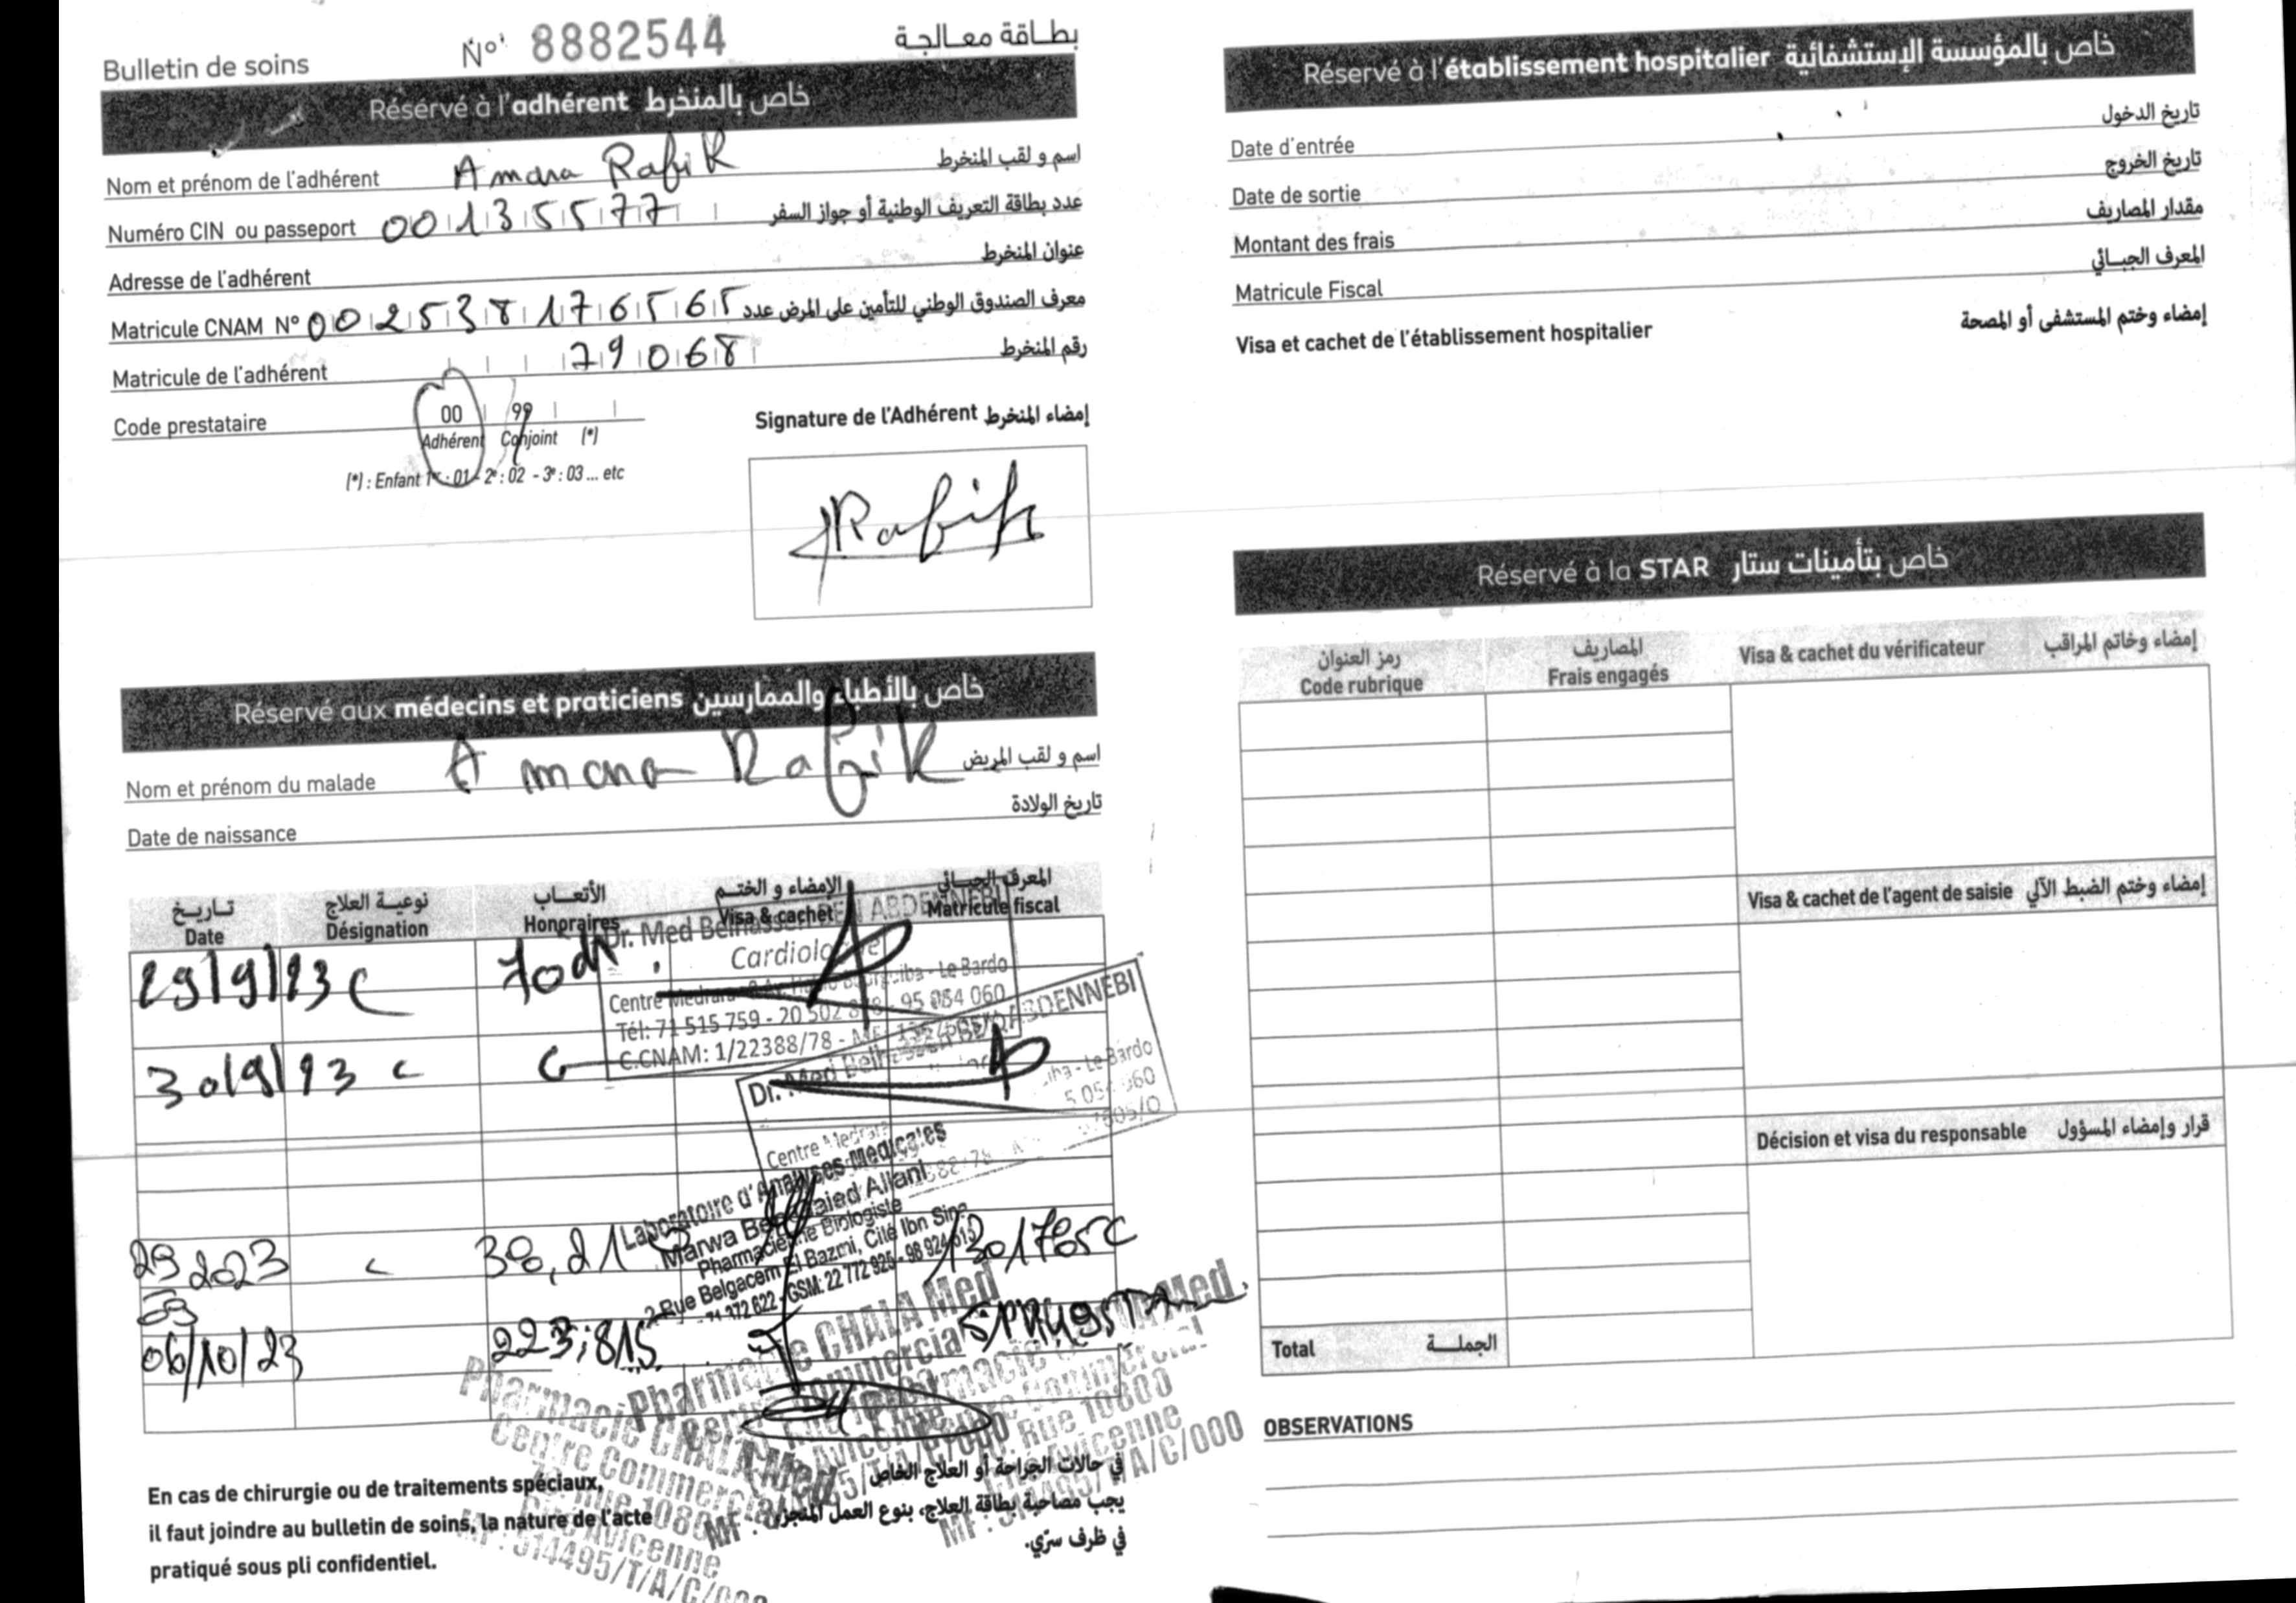 Bulletin de soins N° 8882544 بطـاقة معـالجـة
Résérvé à l'adhérent خاص بالمنخرط
Nom et prénom de l'adhérent Amara Rafik اسم و لقب المنخرط
Numéro CIN ou passeport 00135577 عدد بطاقة التعريف الوطنية أو جواز السفر
Adresse de l'adhérent عنوان المنخرط
Matricule CNAM N° 002538176565 معرف الصندوق الوطني للتأمين على المرض عدد
Matricule de l'adhérent 79068 رقم المنخرط
Code prestataire 00 99
Adhérent Conjoint (*)
(*) : Enfant 1er : 01 - 2e : 02 - 3e : 03 ... etc
Signature de l'Adhérent إمضاء المنخرط
Rafik
Réservé aux médecins et praticiens خاص بالأطباء والممارسين
Nom et prénom du malade Amara Rafik اسم و لقب المريض
Date de naissance تاريخ الولادة
تـاريـخ نوعيـة العلاج الأتعـاب الإمضاء و الختـم المعرف الجبـائي
Date Désignation Honoraires Visa & cachet Matricule fiscal
29/9/23 C 70dt
Dr. Med Belhassen BEN ABDENNEBI
Cardiologue
Centre Medrara - Le Bardo
Tél: 71 515 759 - 95 054 060
C.CNAM: 1/22388/78
30/9/23 C
Dr. Med Belhassen BEN ABDENNEBI
Centre Medrara - Le Bardo
Laboratoire d'Analyses Médicales
Marwa Allani
Pharmacienne Biologiste
2 Rue Belgacem El Bazmi, Cité Ibn Sina
71 372 622 - GSM: 22 772 925 - 98 924 613
29 09 2023 38,215
06/10/23 223,815
Pharmacie CHALA Med
Centre Commercial
Rue 10800
Cité Avicenne
MF : 514495/T/A/C/000
En cas de chirurgie ou de traitements spéciaux,
il faut joindre au bulletin de soins, la nature de l'acte
pratiqué sous pli confidentiel.
في حالات الجراحة أو العلاج الخاص
يجب مصاحبة بطاقة العلاج، بنوع العمل المنجز
في ظرف سرّي.
Réservé à l'établissement hospitalier خاص بالمؤسسة الإستشفائية
Date d'entrée تاريخ الدخول
Date de sortie تاريخ الخروج
Montant des frais مقدار المصاريف
Matricule Fiscal المعرف الجبـائي
Visa et cachet de l'établissement hospitalier إمضاء وختم المستشفى أو المصحة
Réservé à la STAR خاص بتأمينات ستار
رمز العنوان المصاريف
Code rubrique Frais engagés Visa & cachet du vérificateur إمضاء وخاتم المراقب
Visa & cachet de l'agent de saisie إمضاء وختم الضبط الآلي
Décision et visa du responsable قرار وإمضاء المسؤول
Total الجملـــة
OBSERVATIONS